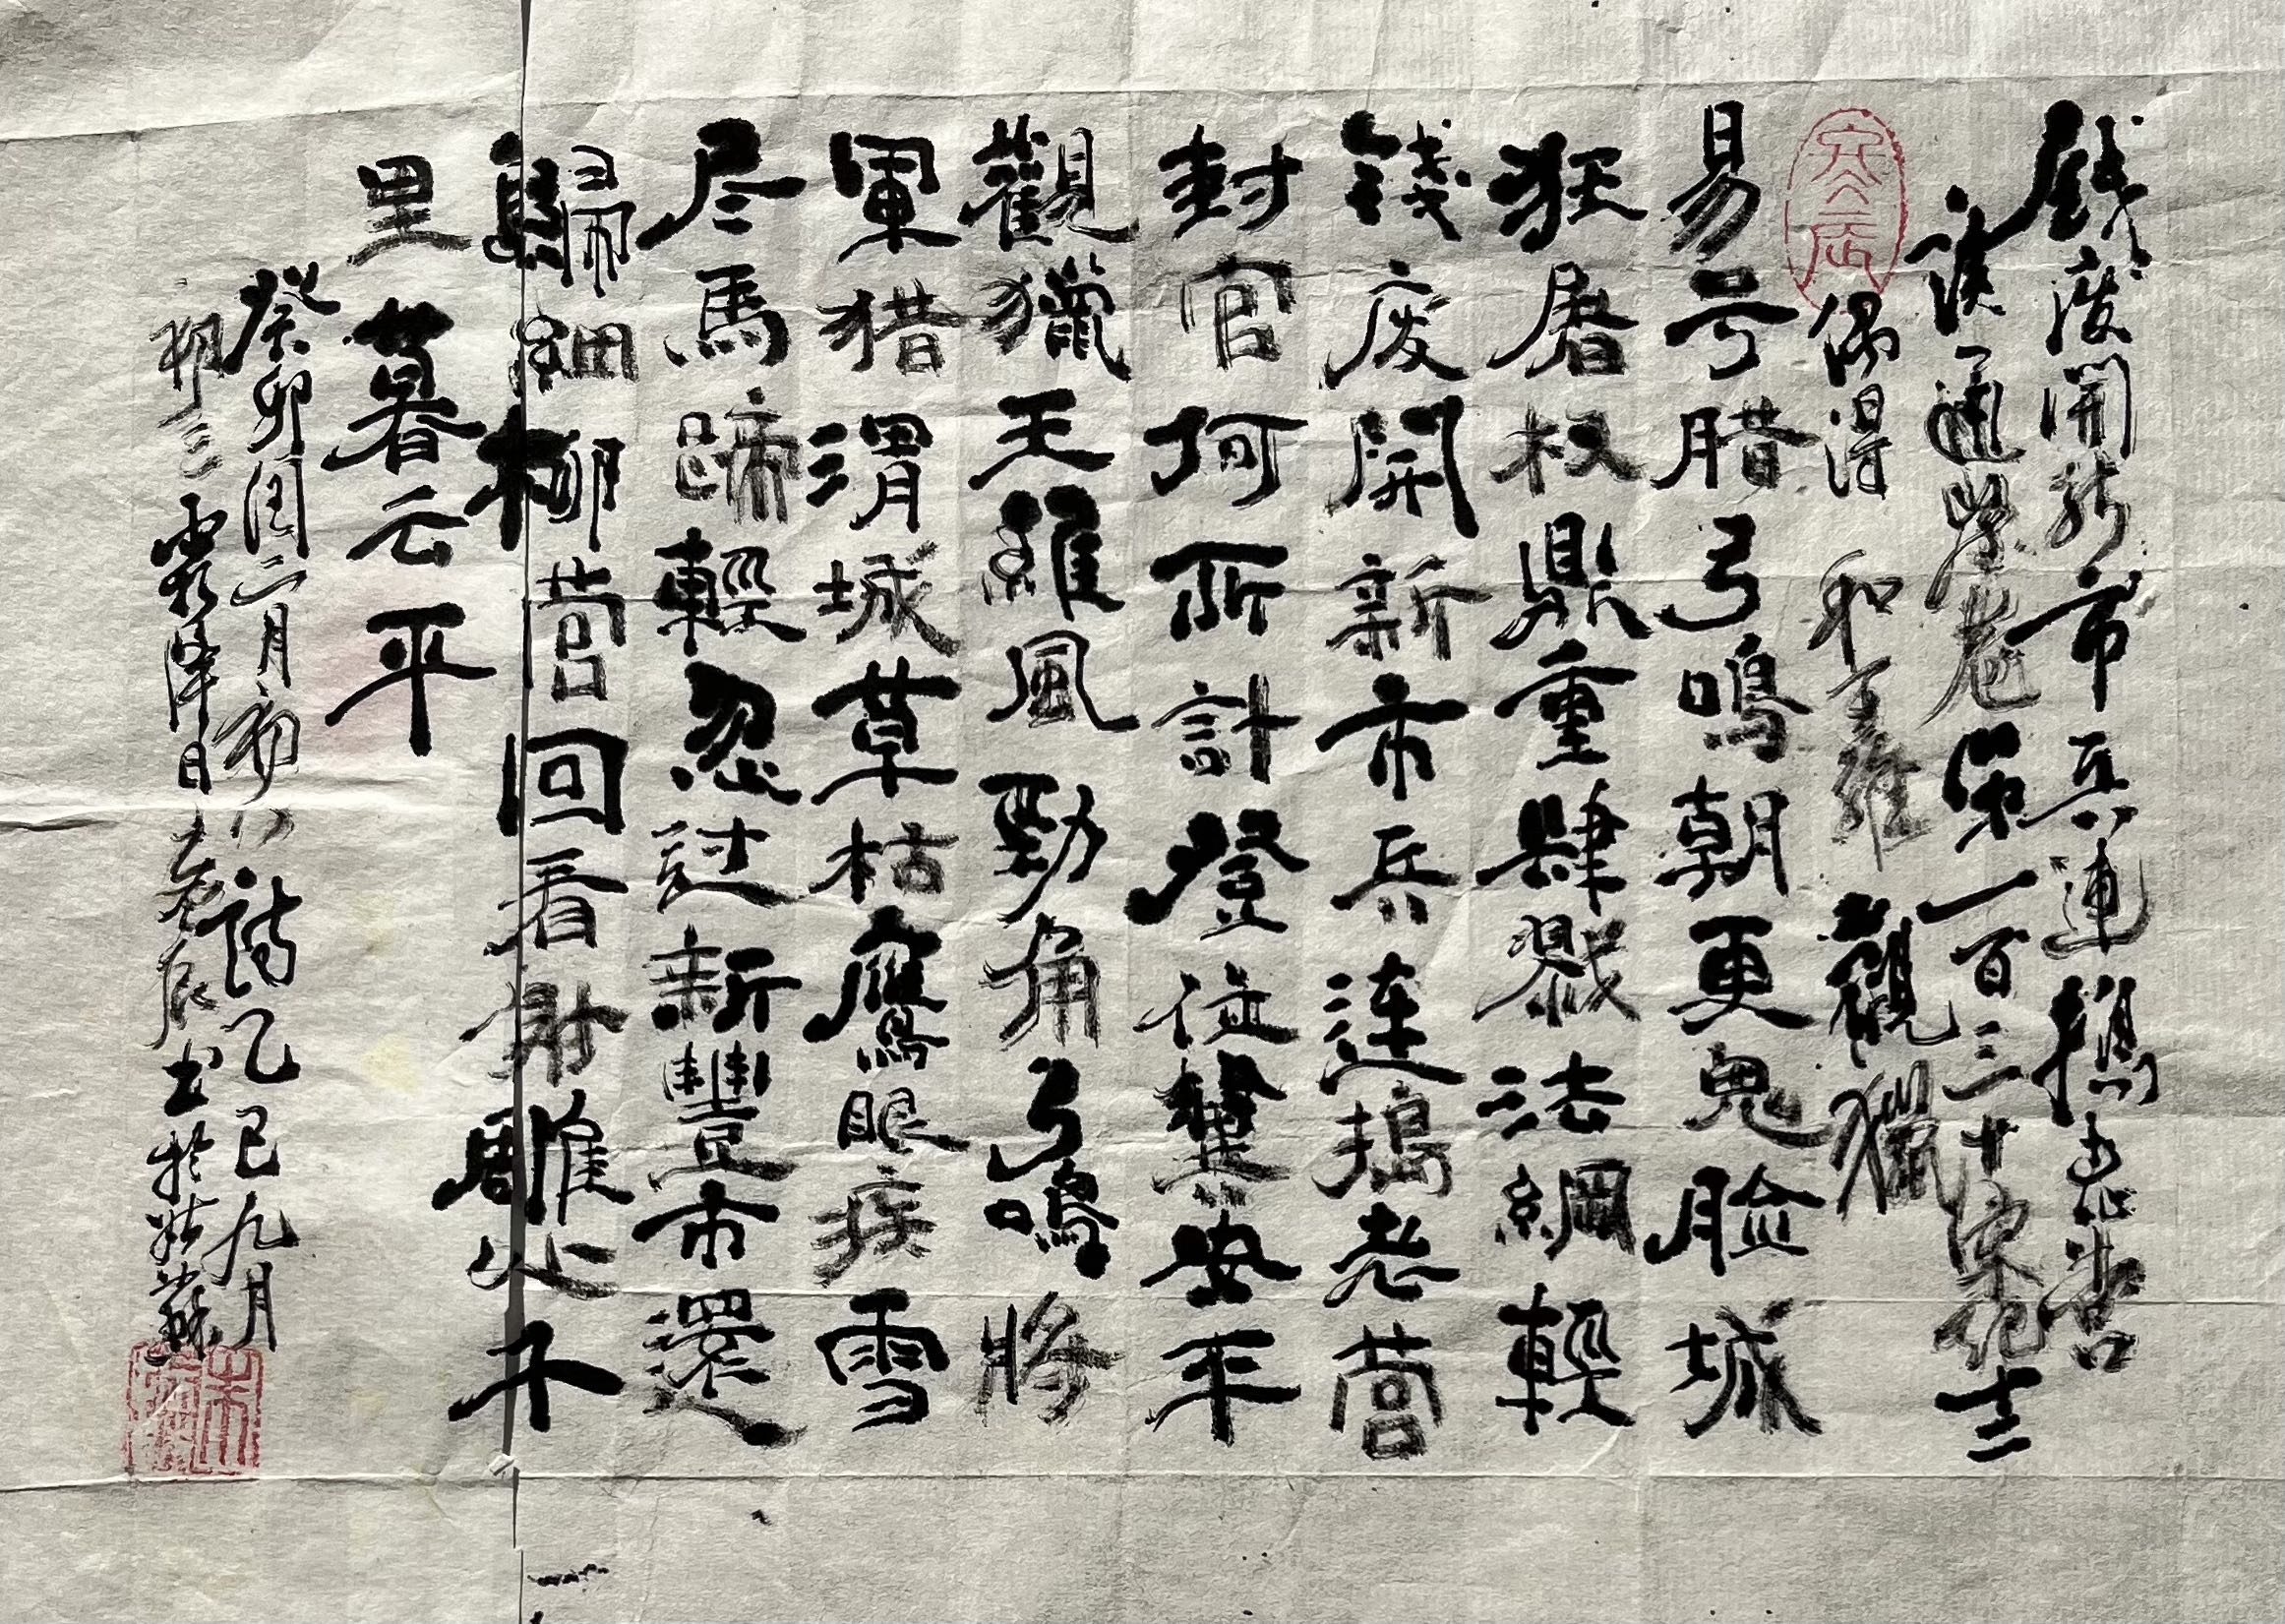 錢废開新市兵連搗老营
读通鑒卷第一百三十宋纪十二
偶得 和王維 觀獵
易号腊弓鳴朝更鬼臉城
狂屠权鼎重肆戮法綱輕
錢废開新市兵連搗老营
封官何所計登位冀安平
觀獵王維風勁角弓鳴將
軍猎渭城草枯鷹眼疾雪
尽馬蹄輕忽过新豐市還
歸細柳营回看射雕处千
里暮云平
癸卯闰二月初八詩乙巳九月
初三霜降日 书於姑蘇